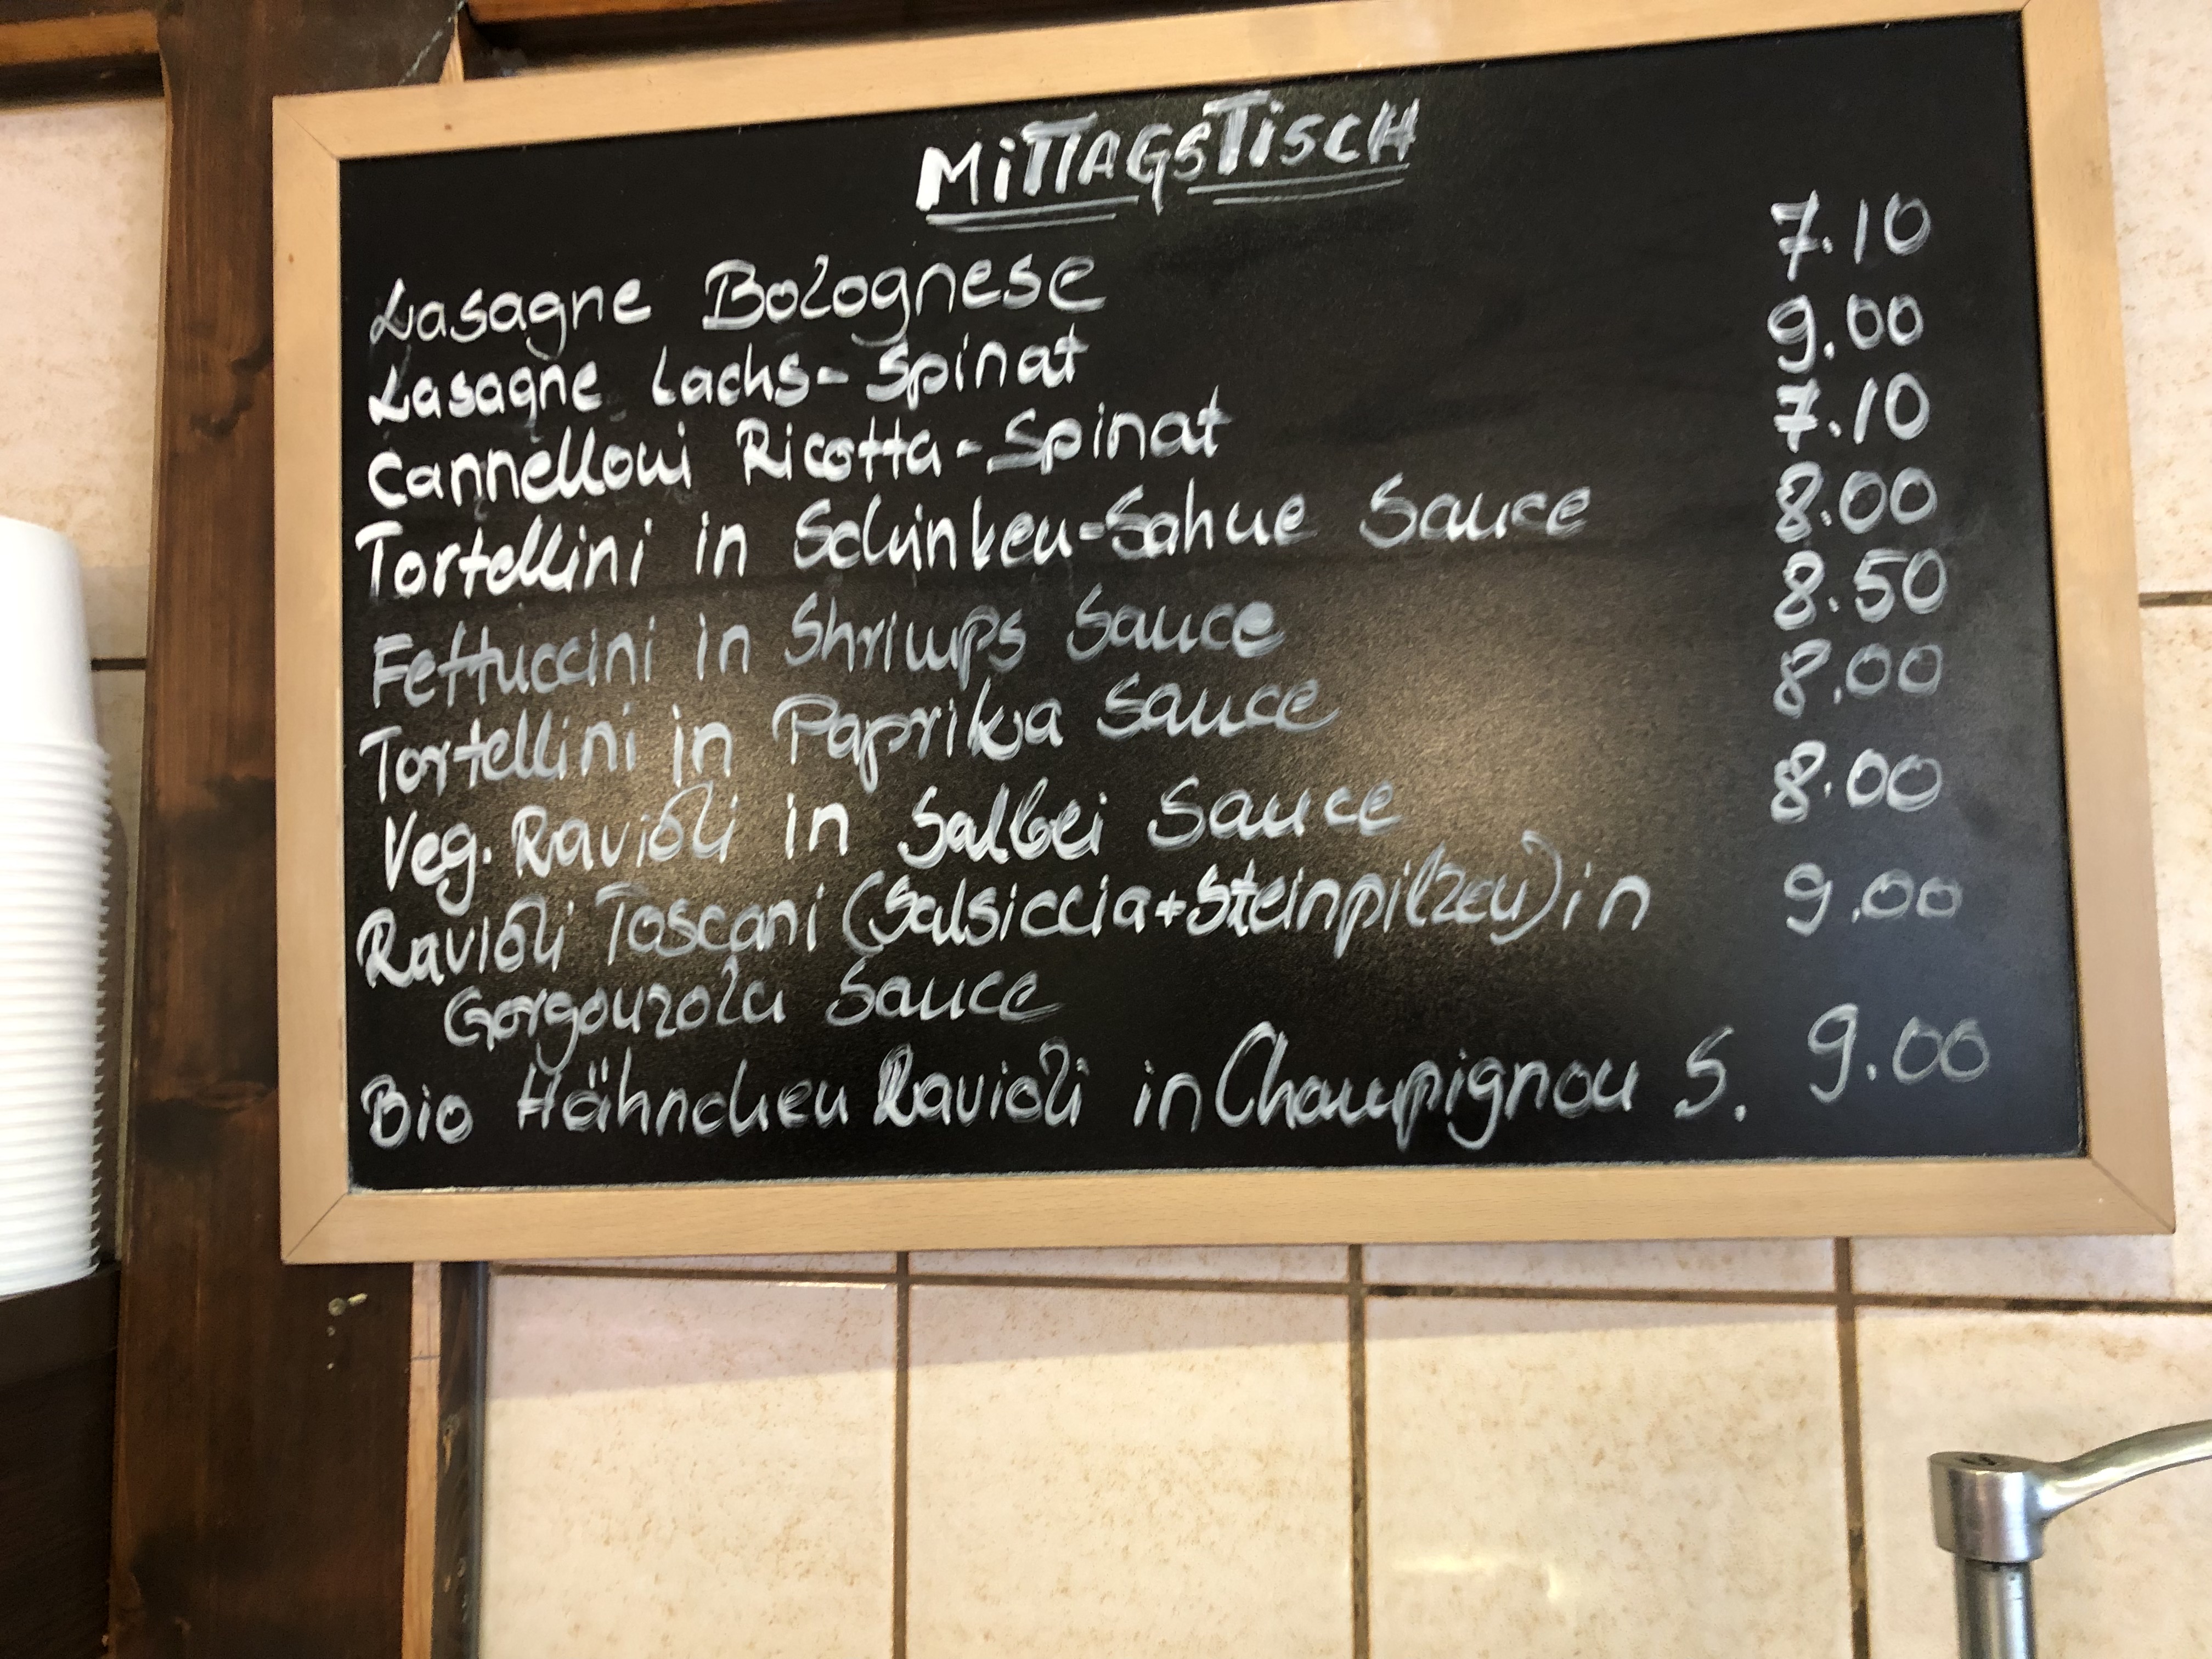 MiTTAGSTiSCH
Lasagne Bolognese 7.10
Lasagne Lachs-Spinat 9.00
Cannelloni Ricotta-Spinat 7.10
Tortellini in Schinken-Sahne Sauce 8.00
Fettuccini in Shrimps Sauce 8.50
Tortellini in Paprika Sauce 8.00
Veg. Ravioli in Salbei Sauce 8.00
Ravioli Toscani (Salsiccia+Steinpilzen) in 9.00
Gorgonzola Sauce
Bio Hähnchen Ravioli in Champignon S. 9.00